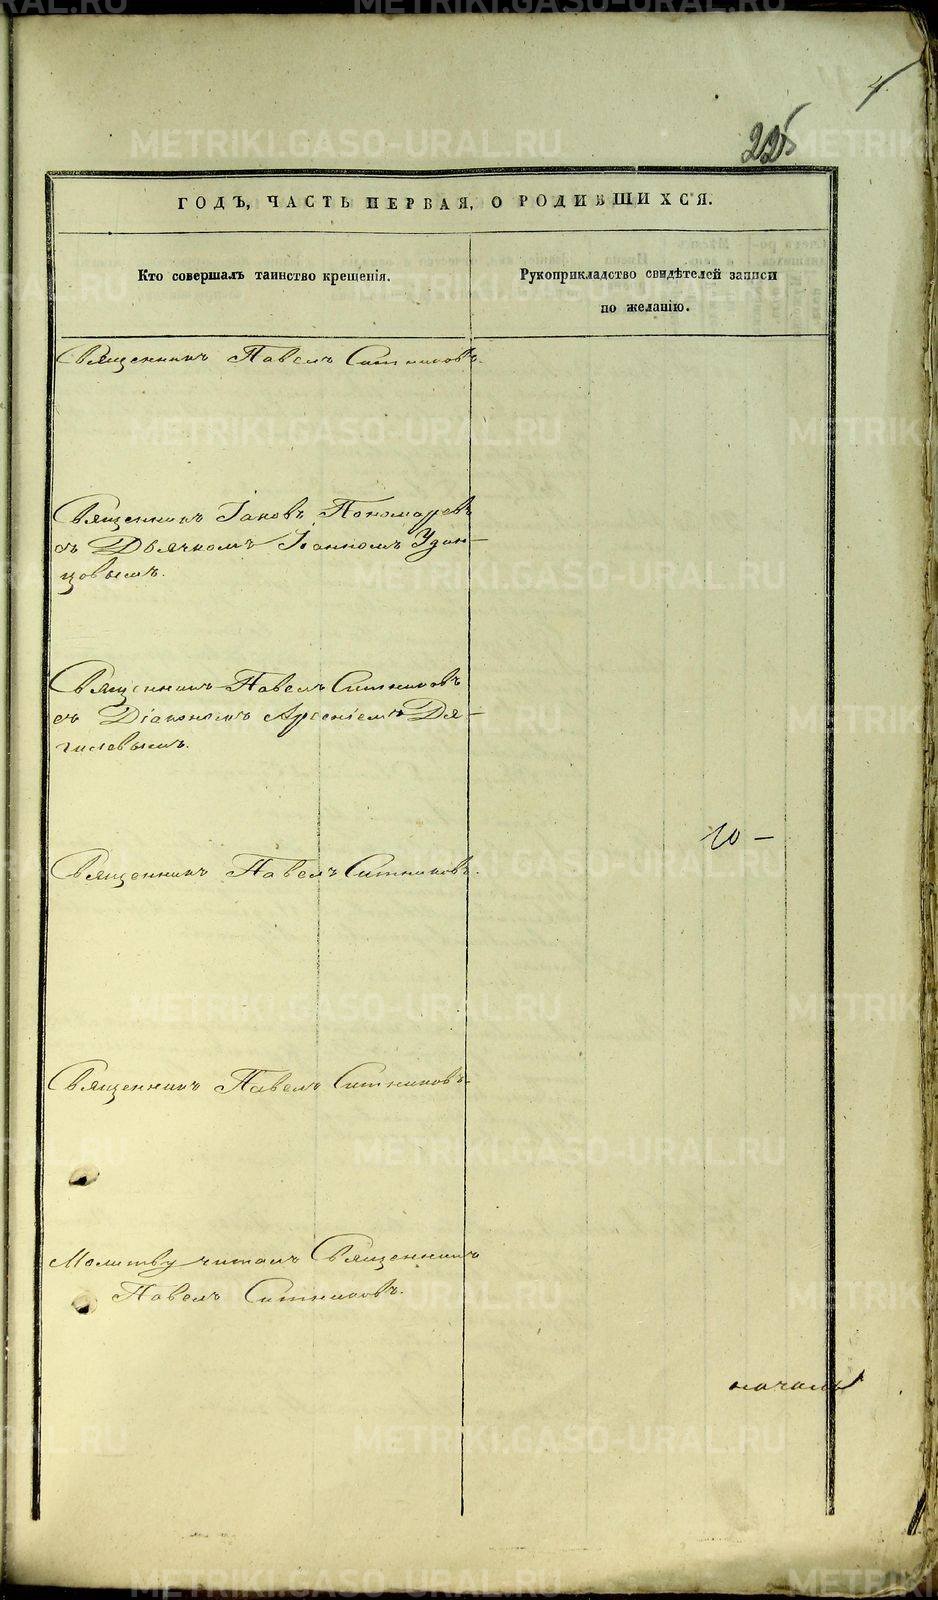 4.
225
ГОДЪ, ЧАСТЬ ПЕРВАЯ, О РОДИВШИХСЯ.
Кто совершалъ таинство крещенія.
Рукоприкладство свидѣтелей записи
по желанію.
Священникъ Павелъ Ситниковъ.
Священникъ Іаковъ Пономаревъ
съ Дьячкомъ Іоанномъ Удин-
цовымъ.
Священникъ Павелъ Ситниковъ
съ Діакономъ Арсеніемъ Дя-
гилевымъ.
10 —
Священникъ Павелъ Ситниковъ.
Священникъ Павелъ Ситниковъ.
Молитву читалъ Священникъ
Павелъ Ситниковъ.
METRIKI.GASO-URAL.RU